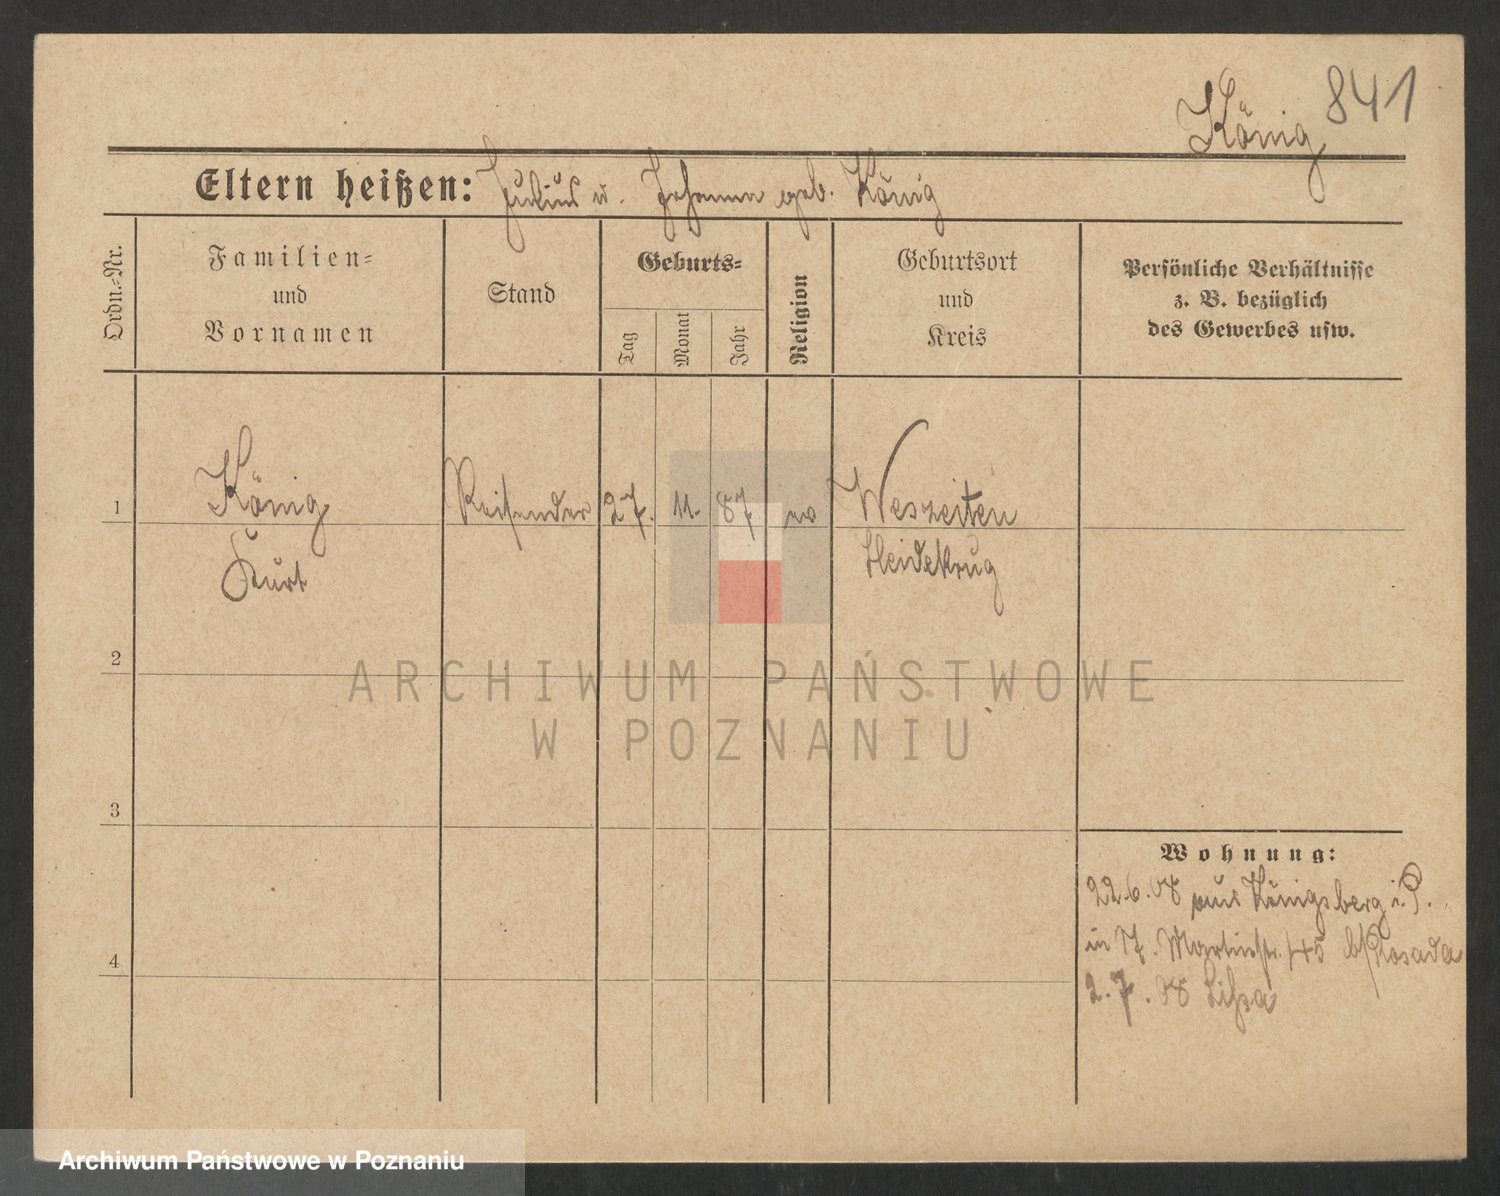 841
König
Eltern heißen: Julius u. Johanna geb. König
Ordn.-Nr.
Familien-
und
Vornamen
Stand
Geburts-
Tag
Monat
Jahr
Religion
Geburtsort
und
Kreis
Persönliche Verhältnisse
z. B. bezüglich
des Gewerbes usw.
1
König
Kurt
Reisender
27.
11.
87
ev
Weszeiten
Heidekrug
2
3
4
Wohnung:
22.6.08 aus Königsberg i. P.
in Martinstr. 45 b/
2.7.08 Lissa
ARCHIWUM PAŃSTWOWE
W POZNANIU
Archiwum Państwowe w Poznaniu